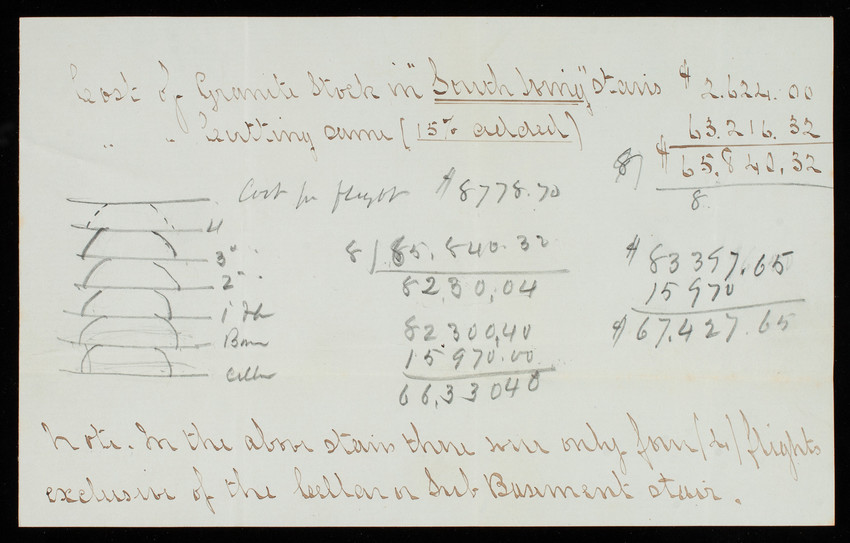 Cost of Granite Stock in "South Wing" stairs $ 2.624.00
" " Cutting same (15% added) 63.216.32
8) $ 65.840.32
8.
Cost per flight $8778.70
4
3" "
2" "
1 Flr
Base
Cellar
8) 65,840.32
82,30,04
82.300,40
15.970.00
66,33040
$ 83397.65
15970
$ 67,427.65
Note. In the above stairs there were only four (4) flights
exclusive of the Cellar or Sub Basement stair.